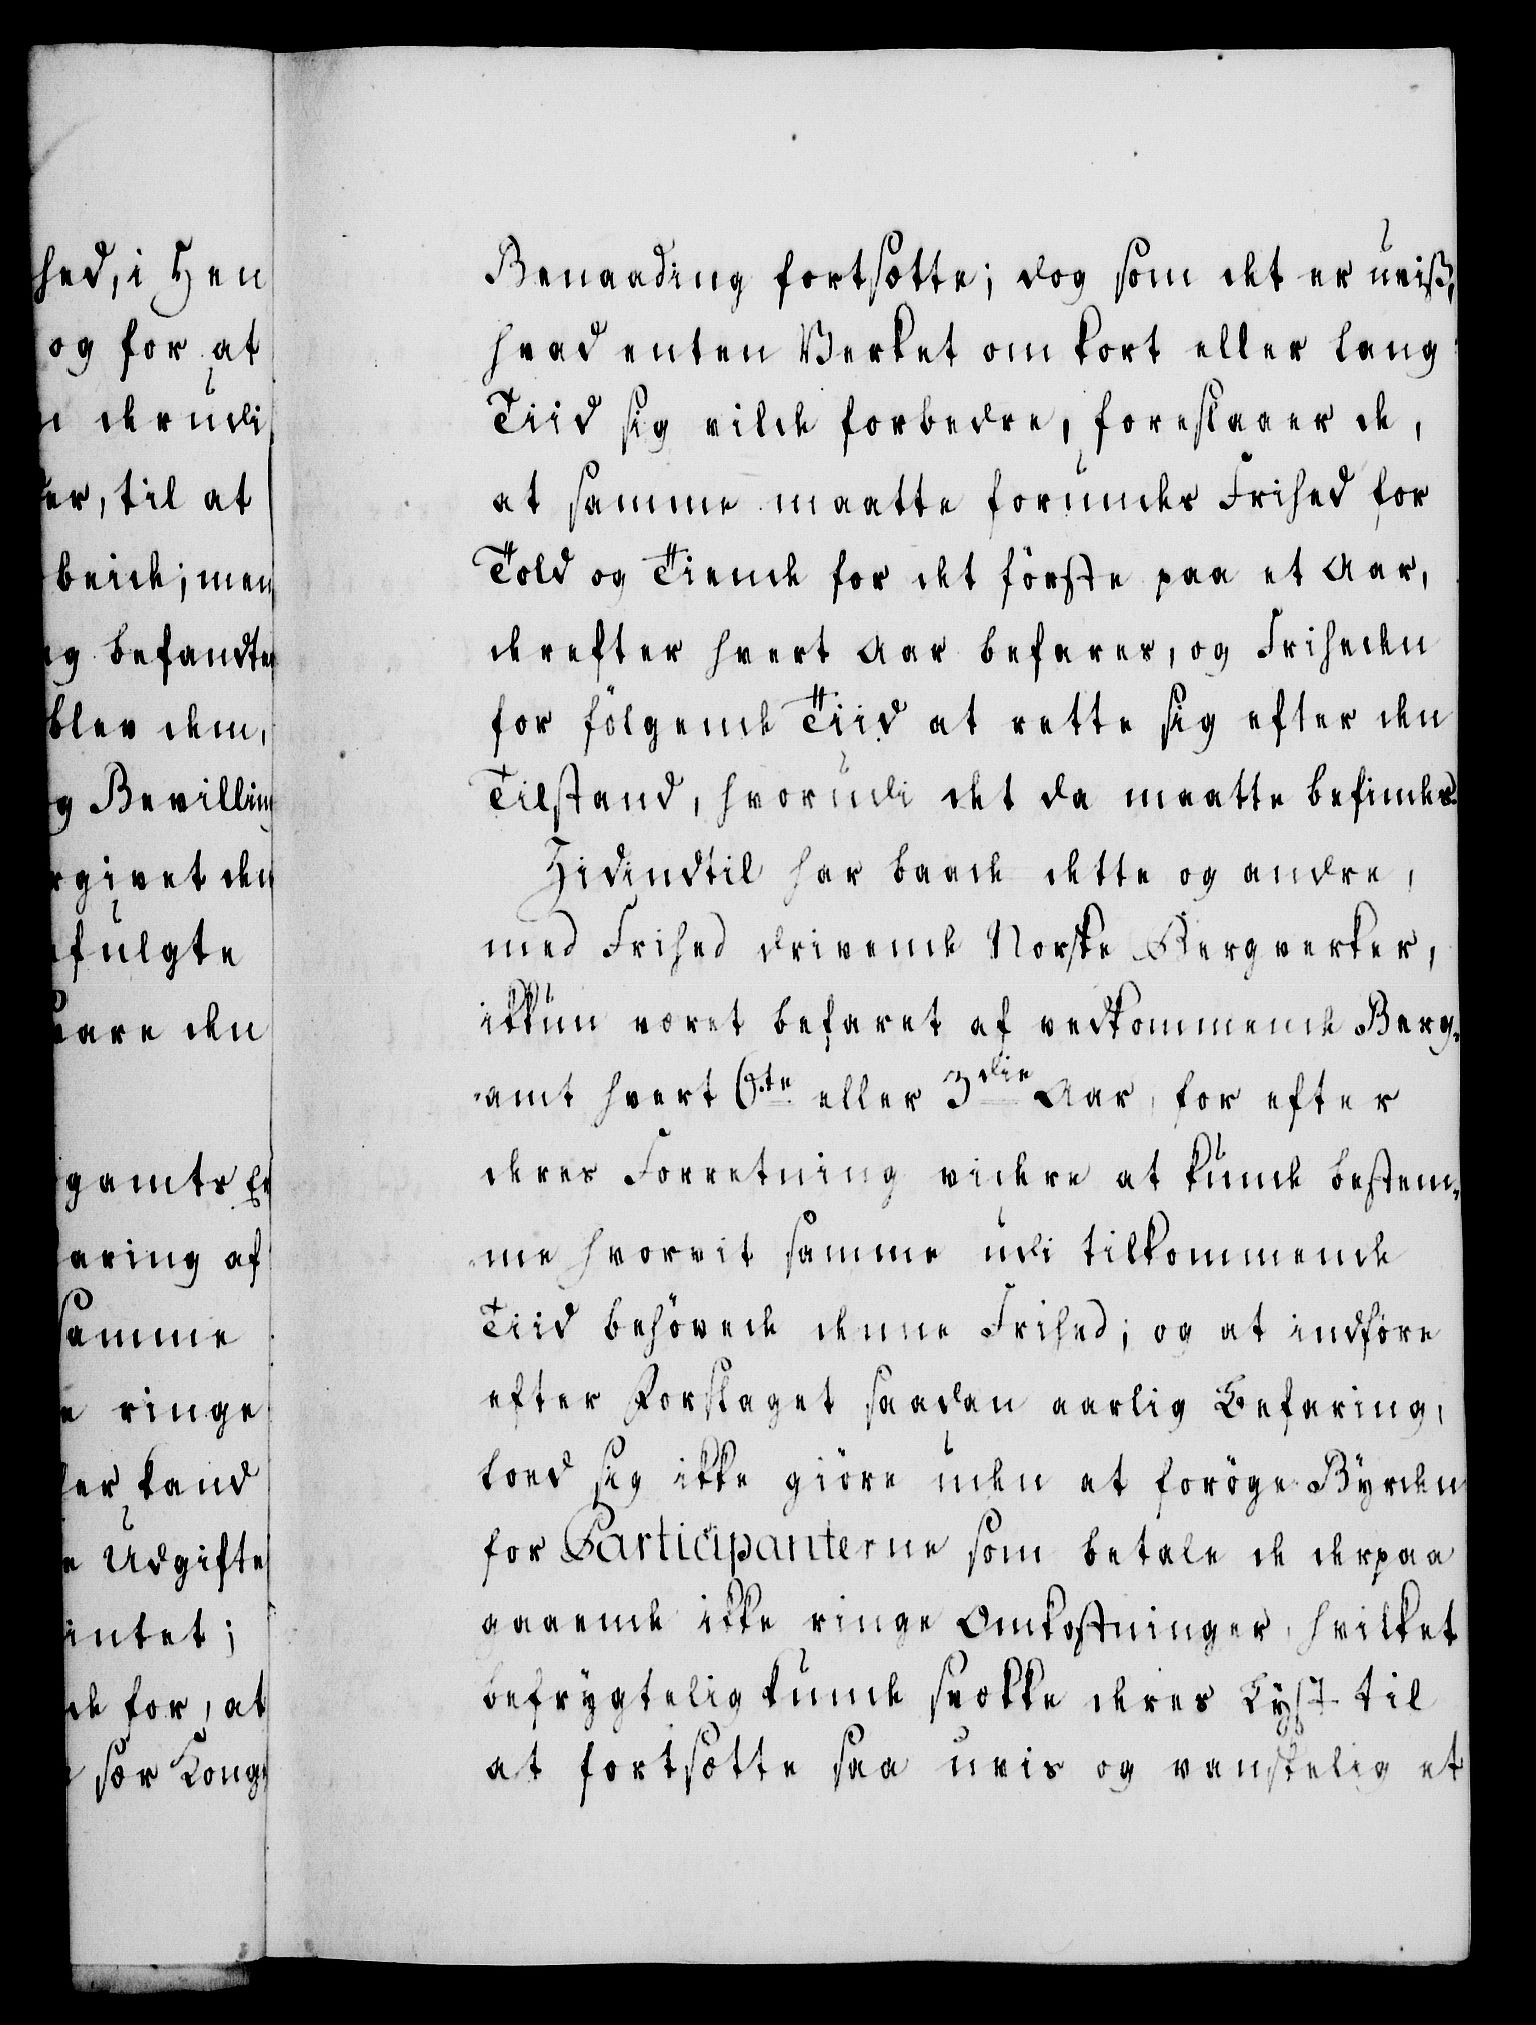 hed, i Hen
og for at
derudi
er, til at
beide; men
og befandtes
blev dem,
Bevilling
givet den
fulgte
vare den
gamts Er
aring af
samme
ringe
ler kand
Udgifte
intet;
de for, at
sær Kong
Benaading fortsætte; dog som det er uvist,
hvad enten Verket om kort eller lang
Tiid sig vilde forbedre, foreslaaer de,
at samme maatte forundes Frihed for
Told og Tiende for det förste paa et Aar,
derefter hvert Aar befares, og Friheden
for fölgende Tiid at rette sig efter den
Tilstand, hvorudi det da maatte befindes.
Hidindtil har baade dette og andre,
med Frihed drivende Norske Bergverker,
ikkun været befaret af vedkommende Berg-
amt hvert 6te eller 3die Aar, for efter
deres Forretning videre at kunde bestem-
me hvorvit samme udi tilkommende
Tiid behövede denne Frihed; og at indföre
efter Forslaget saadan aarlig Befaring,
loed sig ikke giöre uden at foröge Byrden
for Participanterne som betale de derpaa
gaaende ikke ringe Omkostninger, hvilket
befrygtelig kunde svække deres Lyst til
at fortsætte saa uvis og vanskelig et